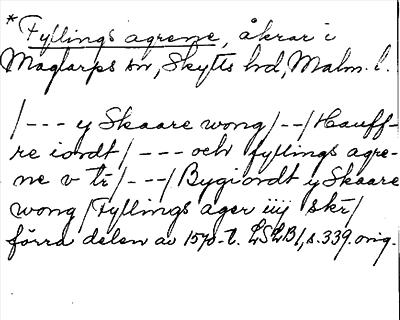 *Fyllings agrene, åkrar i
Maglarps sn, Skytts hd, Malm. l.
/--- y Skaare wong/--/Hauff-
re iordt/--- och fyllings agre-
ne v tr/---/Bygiordt y Skaare
wong/Fyllings ager iiij skr/
förra delen av 1570-t. LSLB1, s. 339. orig.